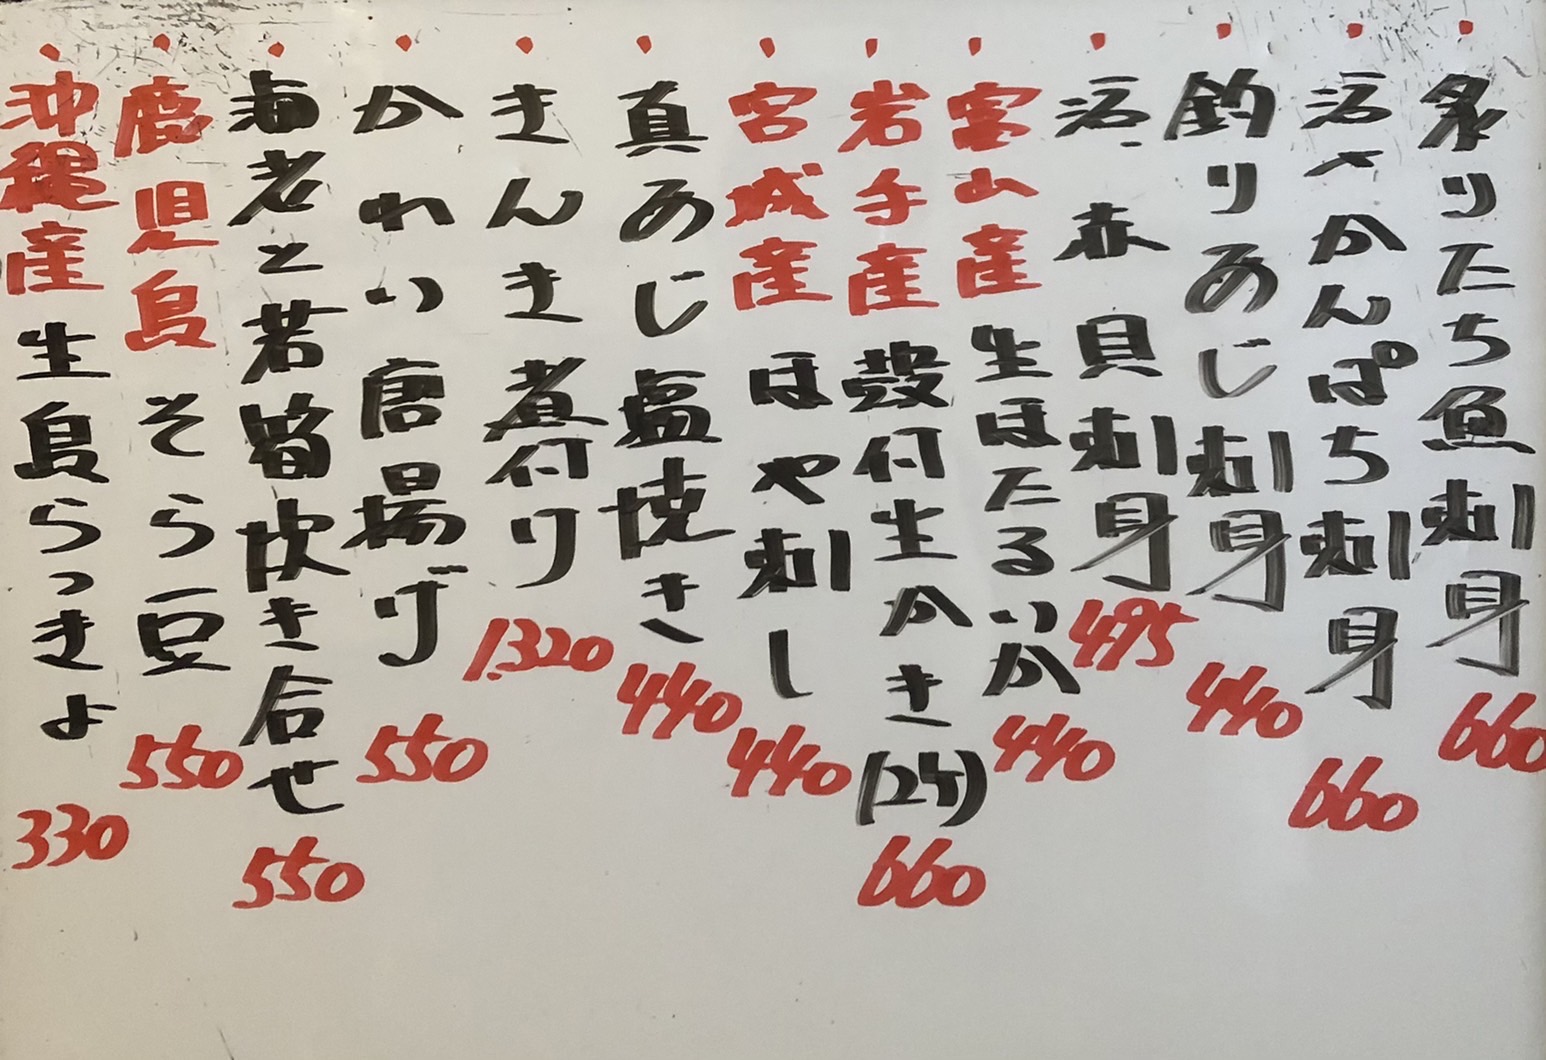 炙りたち魚刺身 660
活〆かんぱち刺身 660
釣りあじ刺身 440
活赤貝刺身 495
富山産 生ほたるいか 440
岩手産 殻付生かき(2ケ) 660
宮城産 ほや刺し 440
真あじ塩焼き 440
きんき煮付け 1.320
かれい唐揚げ 550
海老と若筍炊き合せ 550
鹿児島 そら豆 550
沖縄産 生島らっきょ 330